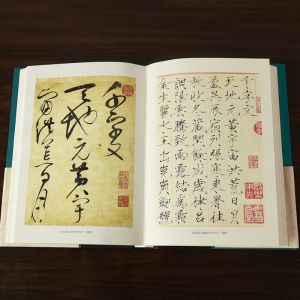 千字文
天地元黄宇
宙洪荒日月
千字文
天地元黄宇宙洪荒日月
盈昃辰宿列張寒來暑往
秋收冬藏閏餘成歲律呂
調陽雲騰致雨露結為霜
金生麗水玉出崑岡劍